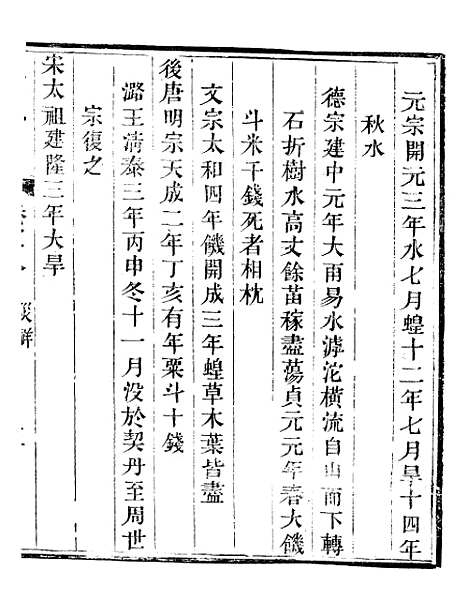 元宗開元三年水七月蝗十二年七月旱十四年
秋水
德宗建中元年大雨易水滹沱橫流自山而下轉
石折樹水高丈餘苗稼盡蕩貞元元年春大饑
斗米千錢死者相枕
文宗太和四年饑開成三年蝗草木葉皆盡
後唐明宗天成二年丁亥有年粟斗十錢
潞王清泰三年丙申冬十一月没於契丹至周世
宗復之
宋太祖建隆三年大旱